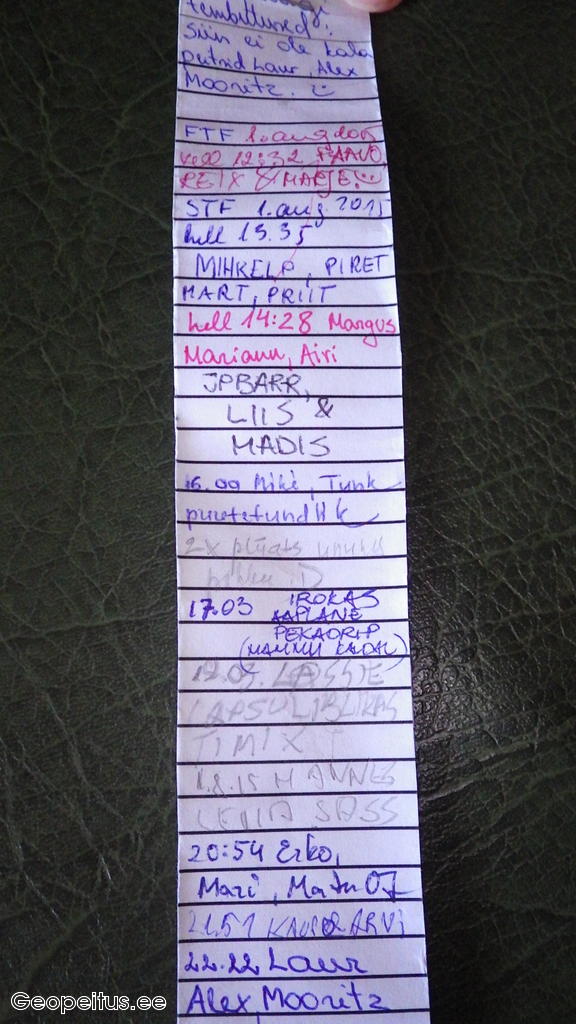 tembutused!
Siin ei ole kala
putsid Laur, Alex
Mooritz.
FTF 1.aug 2015
kell 12:32 PAAVO,
REIX & MARJE.
STF 1.aug. 2015
kell 13.35
MIHKELP, PIRET
MART, PRIIT
kell 14:28 Margus
Mariann, Airi
JPBARR,
LIIS &
MADIS
16.00 Miki, Tunk
2x
17.03 IROKAS
AAPLANE
PEKAORIP
(MAMMU KALDAL)
19.03. LASSIE
LAPSULIBLIKAS
TIMIX
1.8.15 HANNES
LENNA SASS
20:54 Erko,
Mari, MartenOJ
21.51 KAUR & ARVI
22.22 Laur
Alex, Mooritz
Geopeitus.ee